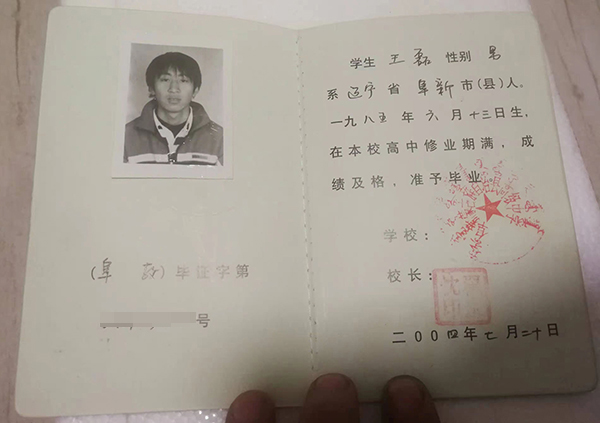 (阜 蒙) 毕证字第
号
学生 王磊 性别 男
系 辽宁 省 阜新 市(县)人。
一九八五 年 六 月 十三 日生,
在本校高中修业期满, 成
绩及格, 准予毕业
学校:
校长:
二00四年七月二十日